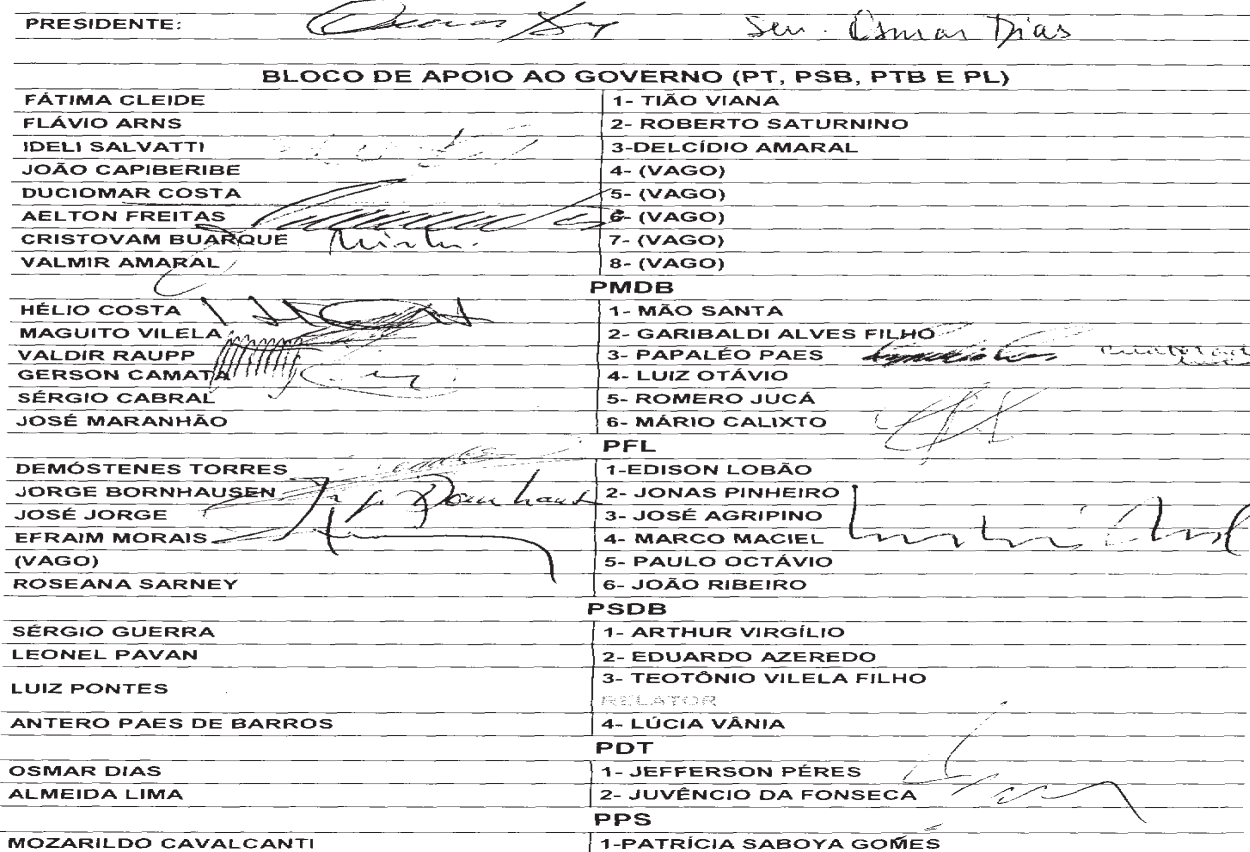 PRESIDENTE: Sen. Osmar Dias
BLOCO DE APOIO AO GOVERNO (PT, PSB, PTB E PL)
FÁTIMA CLEIDE 1- TIÃO VIANA
FLÁVIO ARNS 2- ROBERTO SATURNINO
IDELI SALVATTI 3-DELCÍDIO AMARAL
JOÃO CAPIBERIBE 4- (VAGO)
DUCIOMAR COSTA 5- (VAGO)
AELTON FREITAS 6- (VAGO)
CRISTOVAM BUARQUE 7- (VAGO)
VALMIR AMARAL 8- (VAGO)
PMDB
HÉLIO COSTA 1- MÃO SANTA
MAGUITO VILELA 2- GARIBALDI ALVES FILHO
VALDIR RAUPP 3- PAPALÉO PAES
GERSON CAMATA 4- LUIZ OTÁVIO
SÉRGIO CABRAL 5- ROMERO JUCÁ
JOSÉ MARANHÃO 6- MÁRIO CALIXTO
PFL
DEMÓSTENES TORRES 1-EDISON LOBÃO
JORGE BORNHAUSEN 2- JONAS PINHEIRO
JOSÉ JORGE 3- JOSÉ AGRIPINO
EFRAIM MORAIS 4- MARCO MACIEL
(VAGO) 5- PAULO OCTÁVIO
ROSEANA SARNEY 6- JOÃO RIBEIRO
PSDB
SÉRGIO GUERRA 1- ARTHUR VIRGÍLIO
LEONEL PAVAN 2- EDUARDO AZEREDO
LUIZ PONTES 3- TEOTÔNIO VILELA FILHO
RELATOR
ANTERO PAES DE BARROS 4- LÚCIA VÂNIA
PDT
OSMAR DIAS 1- JEFFERSON PÉRES
ALMEIDA LIMA 2- JUVÊNCIO DA FONSECA
PPS
MOZARILDO CAVALCANTI 1-PATRÍCIA SABOYA GOMES